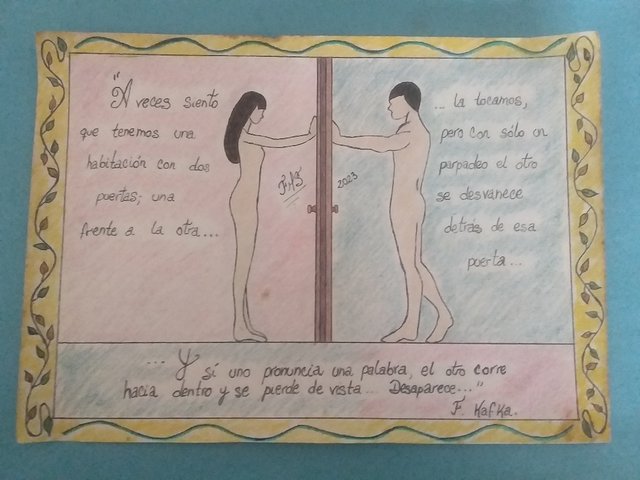 "A veces siento
que tenemos una
habitación con dos
puertas; una
frente a la otra...
... la tocamos,
pero con sólo un
parpadeo el otro
se desvanece
detrás de esa
puerta...
2023
... Y si uno pronuncia una palabra, el otro corre
hacia dentro y se pierde de vista... Desaparece..."
F. Kafka.